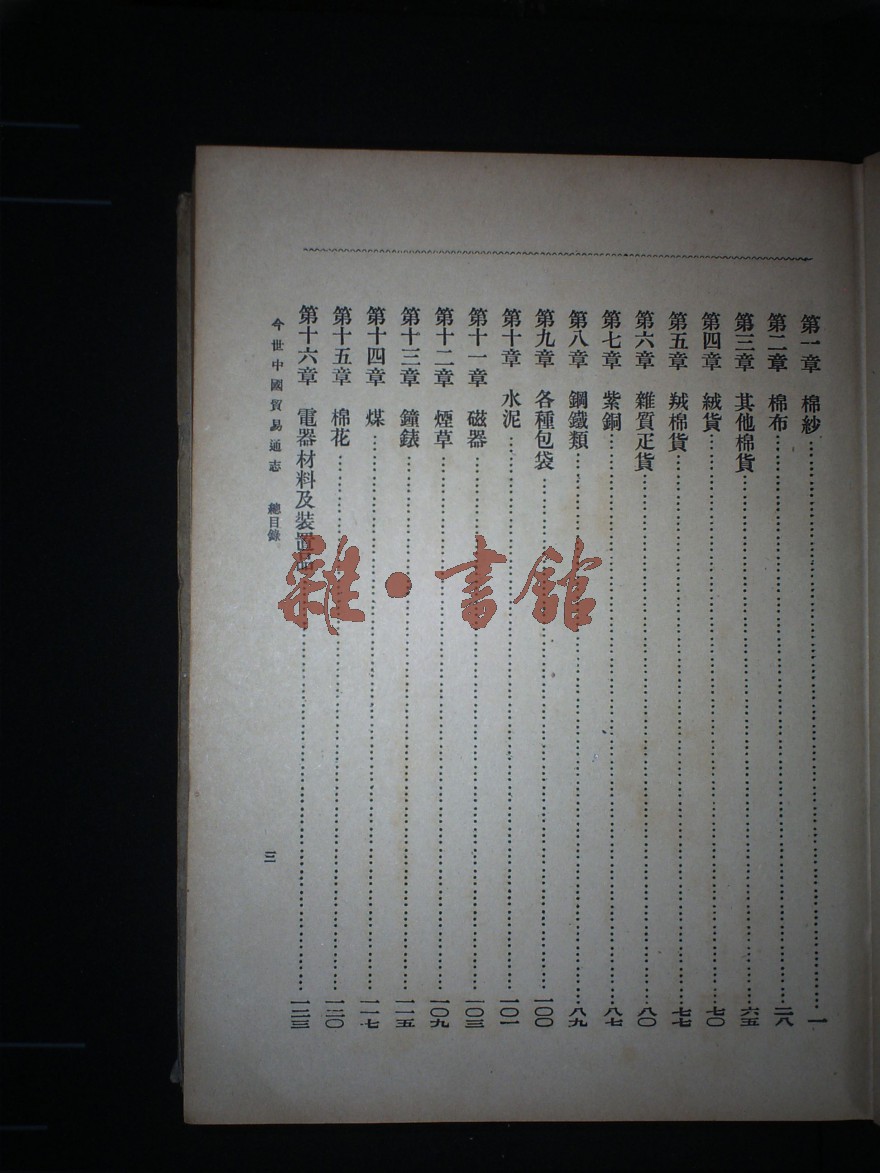 第一章　棉紗……一
第二章　棉布……二八
第三章　其他棉貨……六五
第四章　絨貨……七〇
第五章　羢棉貨……七七
第六章　雜質疋貨……八〇
第七章　紫銅……八七
第八章　鋼鐵類……八九
第九章　各種包袋……一〇〇
第十章　水泥……一〇一
第十一章　磁器……一〇三
第十二章　煙草……一〇九
第十三章　鐘錶……一一五
第十四章　煤……一一七
第十五章　棉花……一二〇
第十六章　電器材料及裝置品……一二三
今世中國貿易通志　總目錄　三
雜·書館